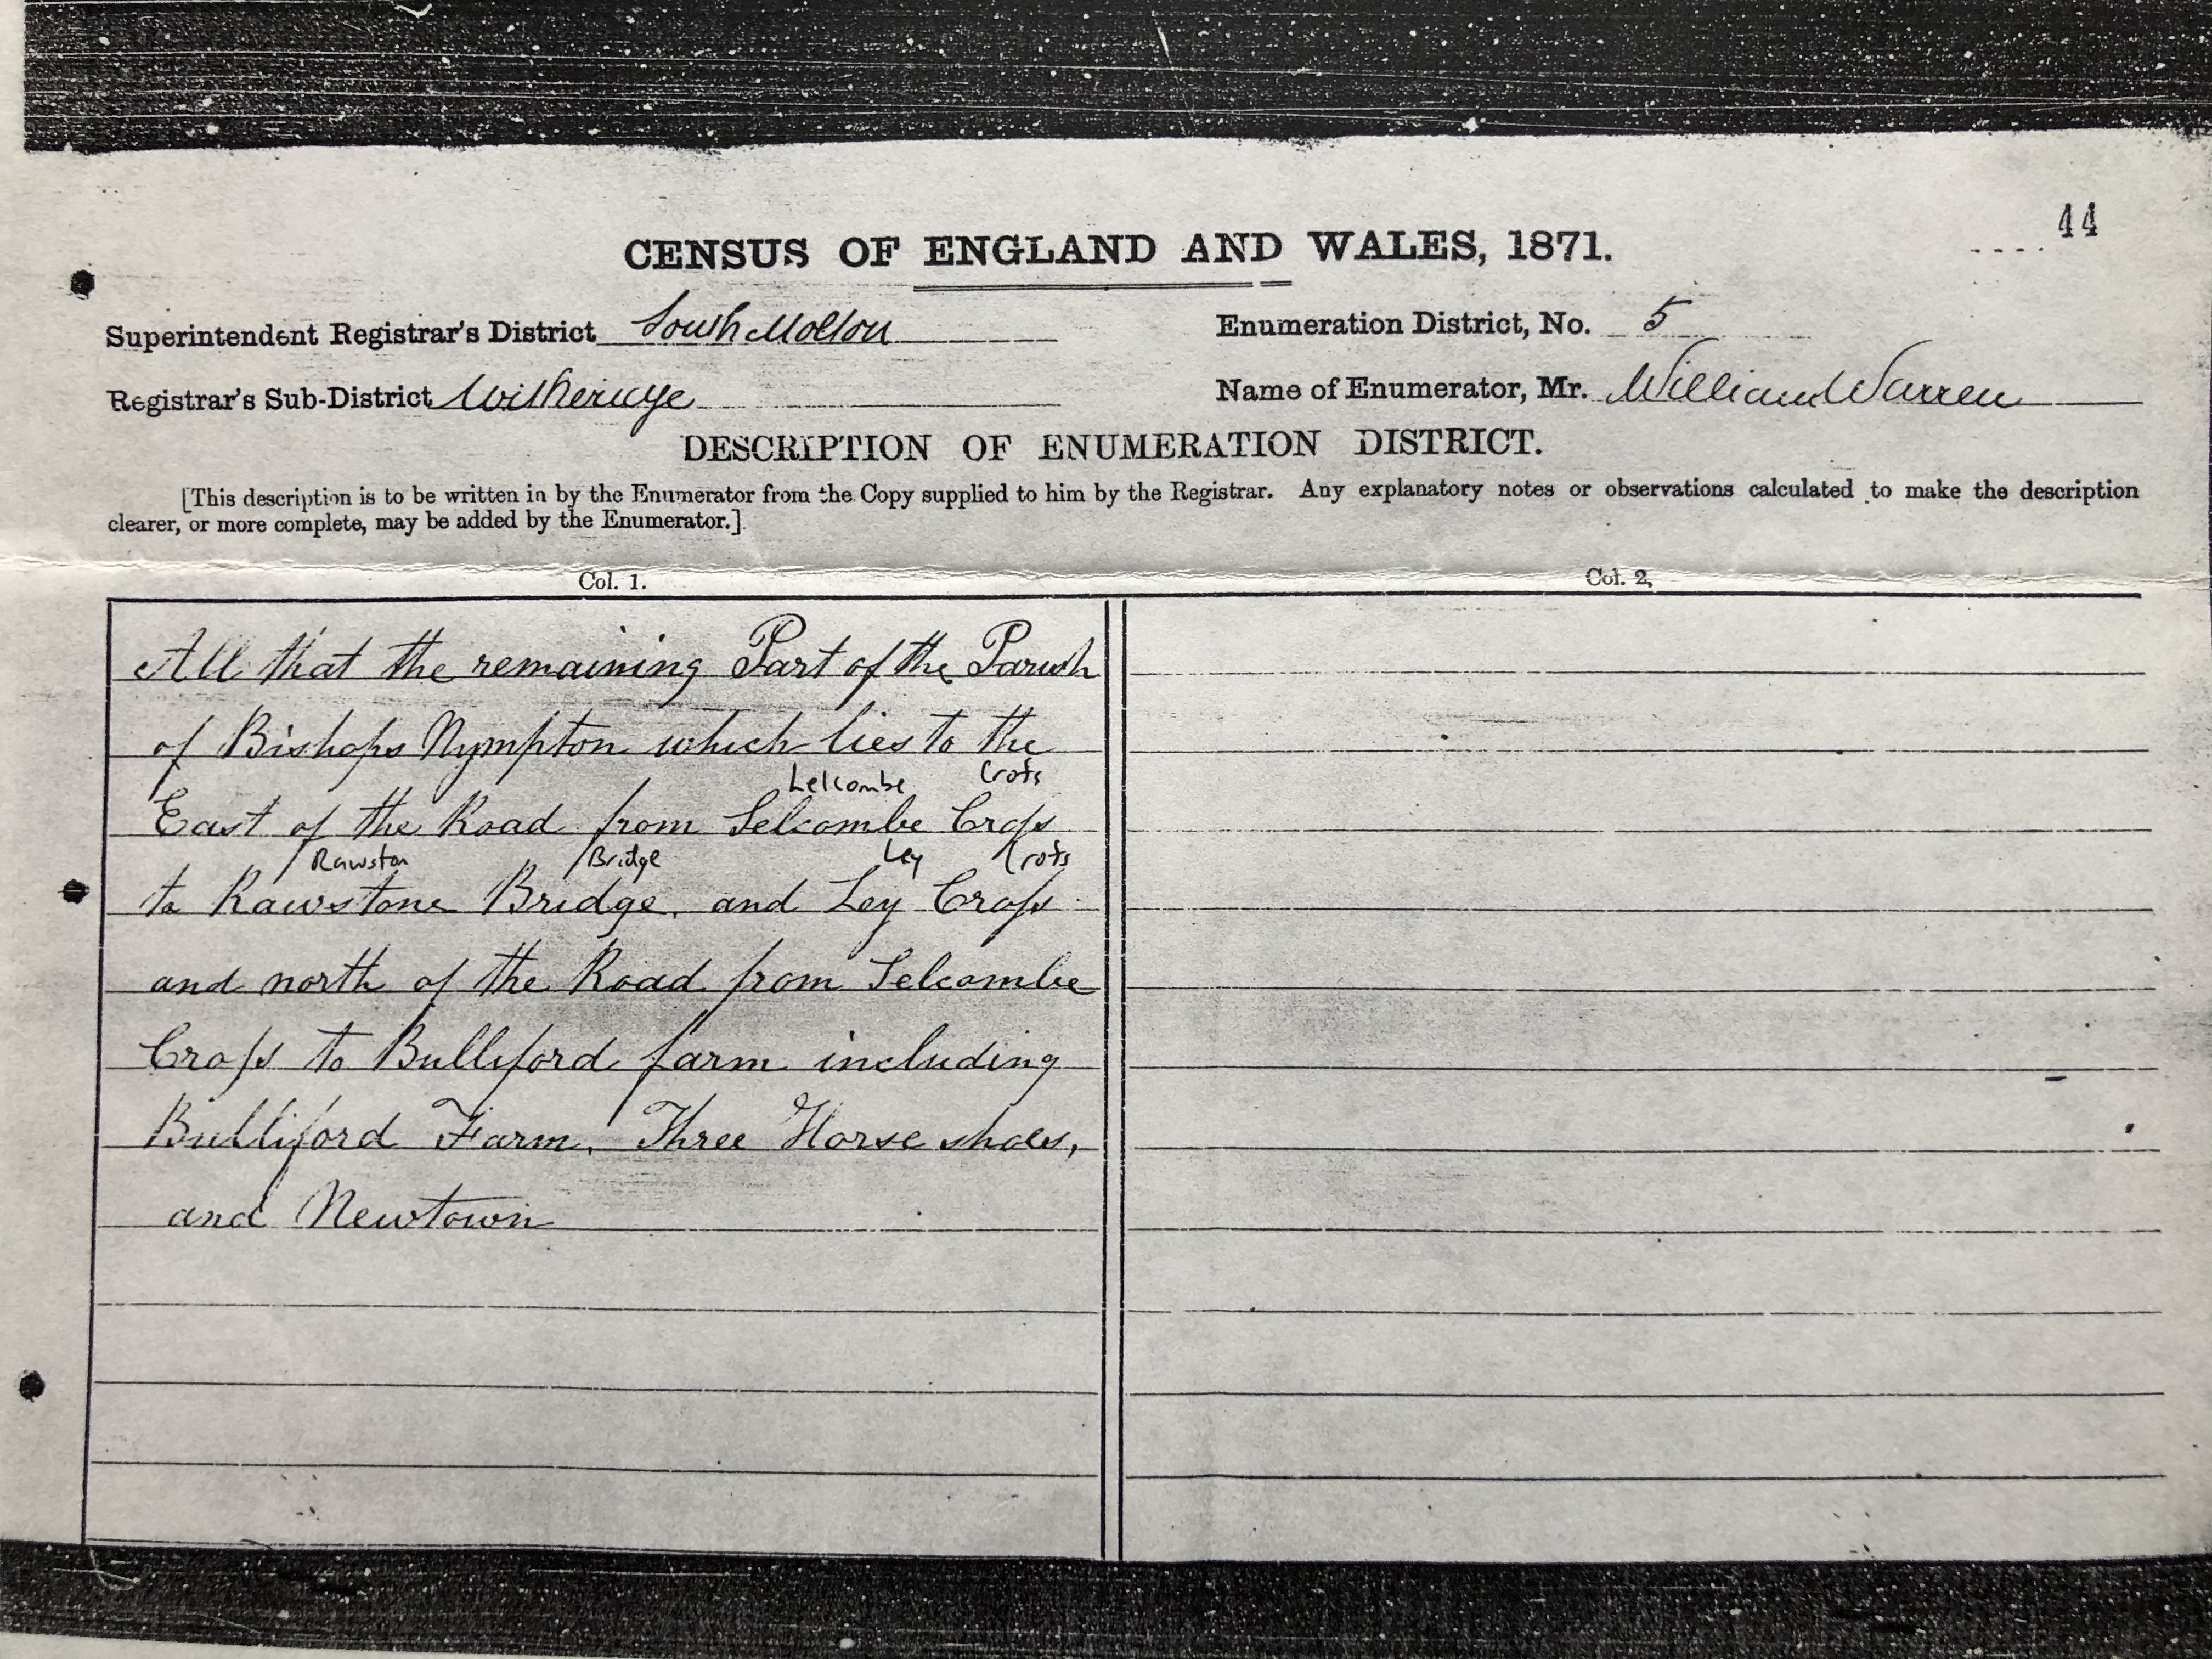 44
CENSUS OF ENGLAND AND WALES, 1871.
Superintendent Registrar's District South Molton
Enumeration District, No. 5
Registrar's Sub-District Witheridge
Name of Enumerator, Mr. William Warren
DESCRIPTION OF ENUMERATION DISTRICT.
[This description is to be written in by the Enumerator from the Copy supplied to him by the Registrar. Any explanatory notes or observations calculated to make the description
clearer, or more complete, may be added by the Enumerator.]
Col. 1.
Col. 2.
All that the remaining Part of the Parish
of Bishops Nympton which lies to the
Lelcombe Crofs
East of the Road from Selcombe Crofs
Rawston Bridge Ley Crofs
to Rawstone Bridge, and Ley Crofs
and north of the Road from Selcombe
Crofs to Bulliford farm including
Bulliford Farm, Three Horse shoes,
and Newtown